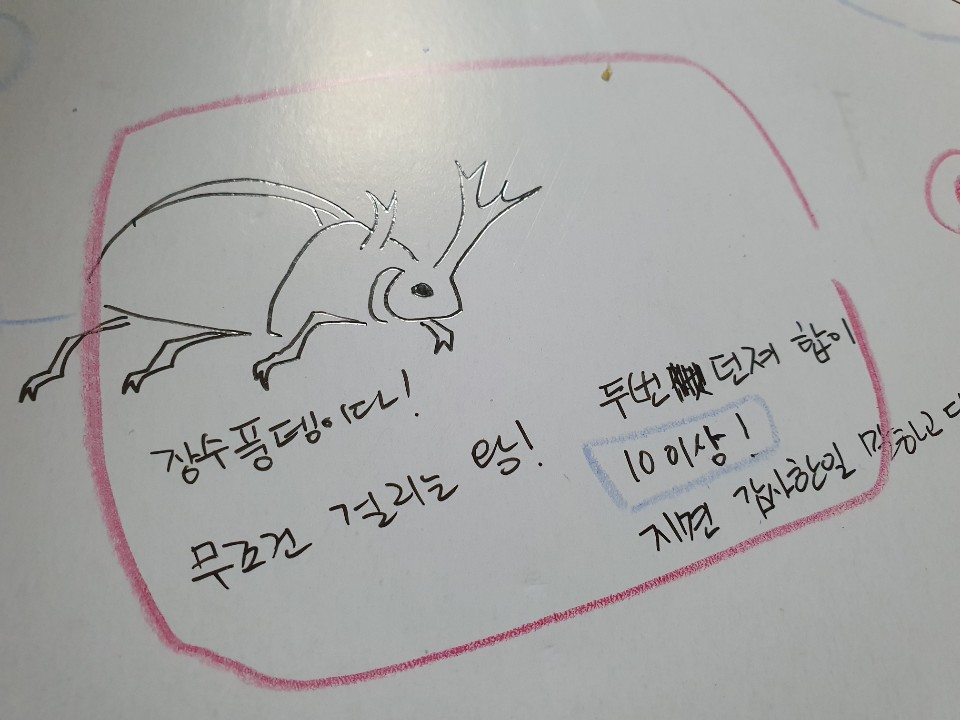 장수풍뎅이다!
무조건 걸리는 임!
두번 던져 합이
10이상!
지면 감사한일 말하고